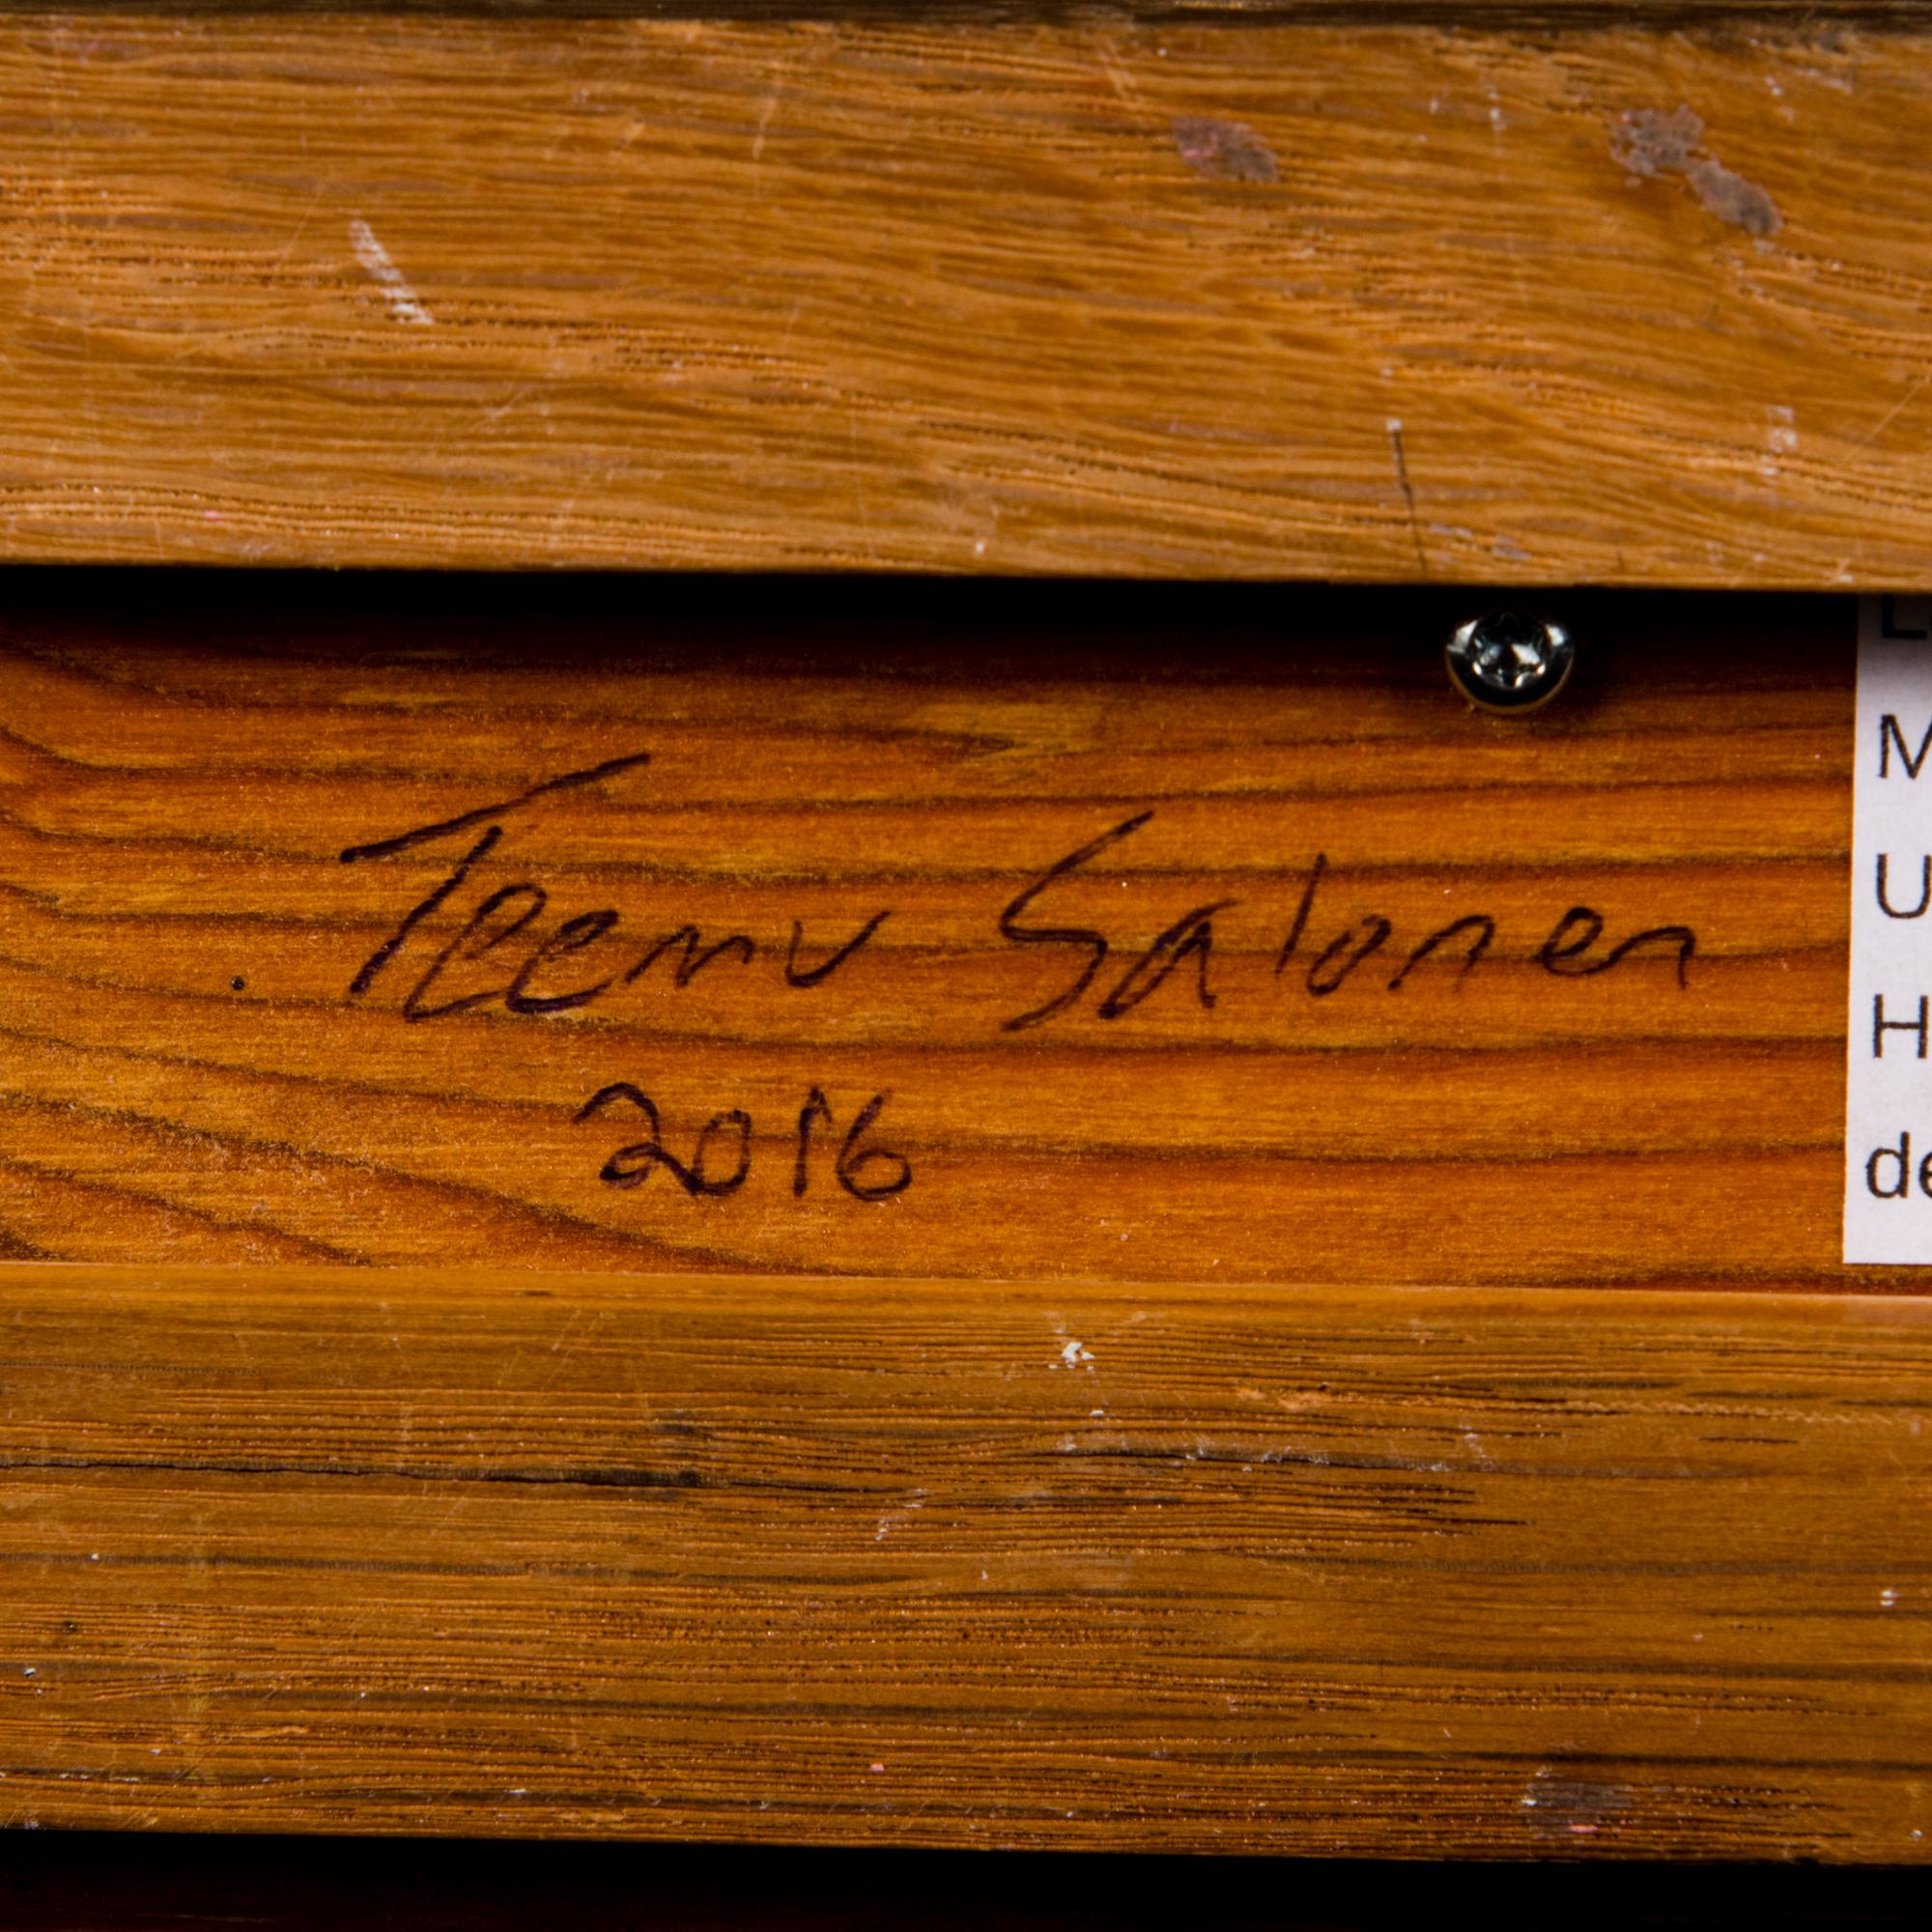 Teemu Salonen
2016
M
U
H
de